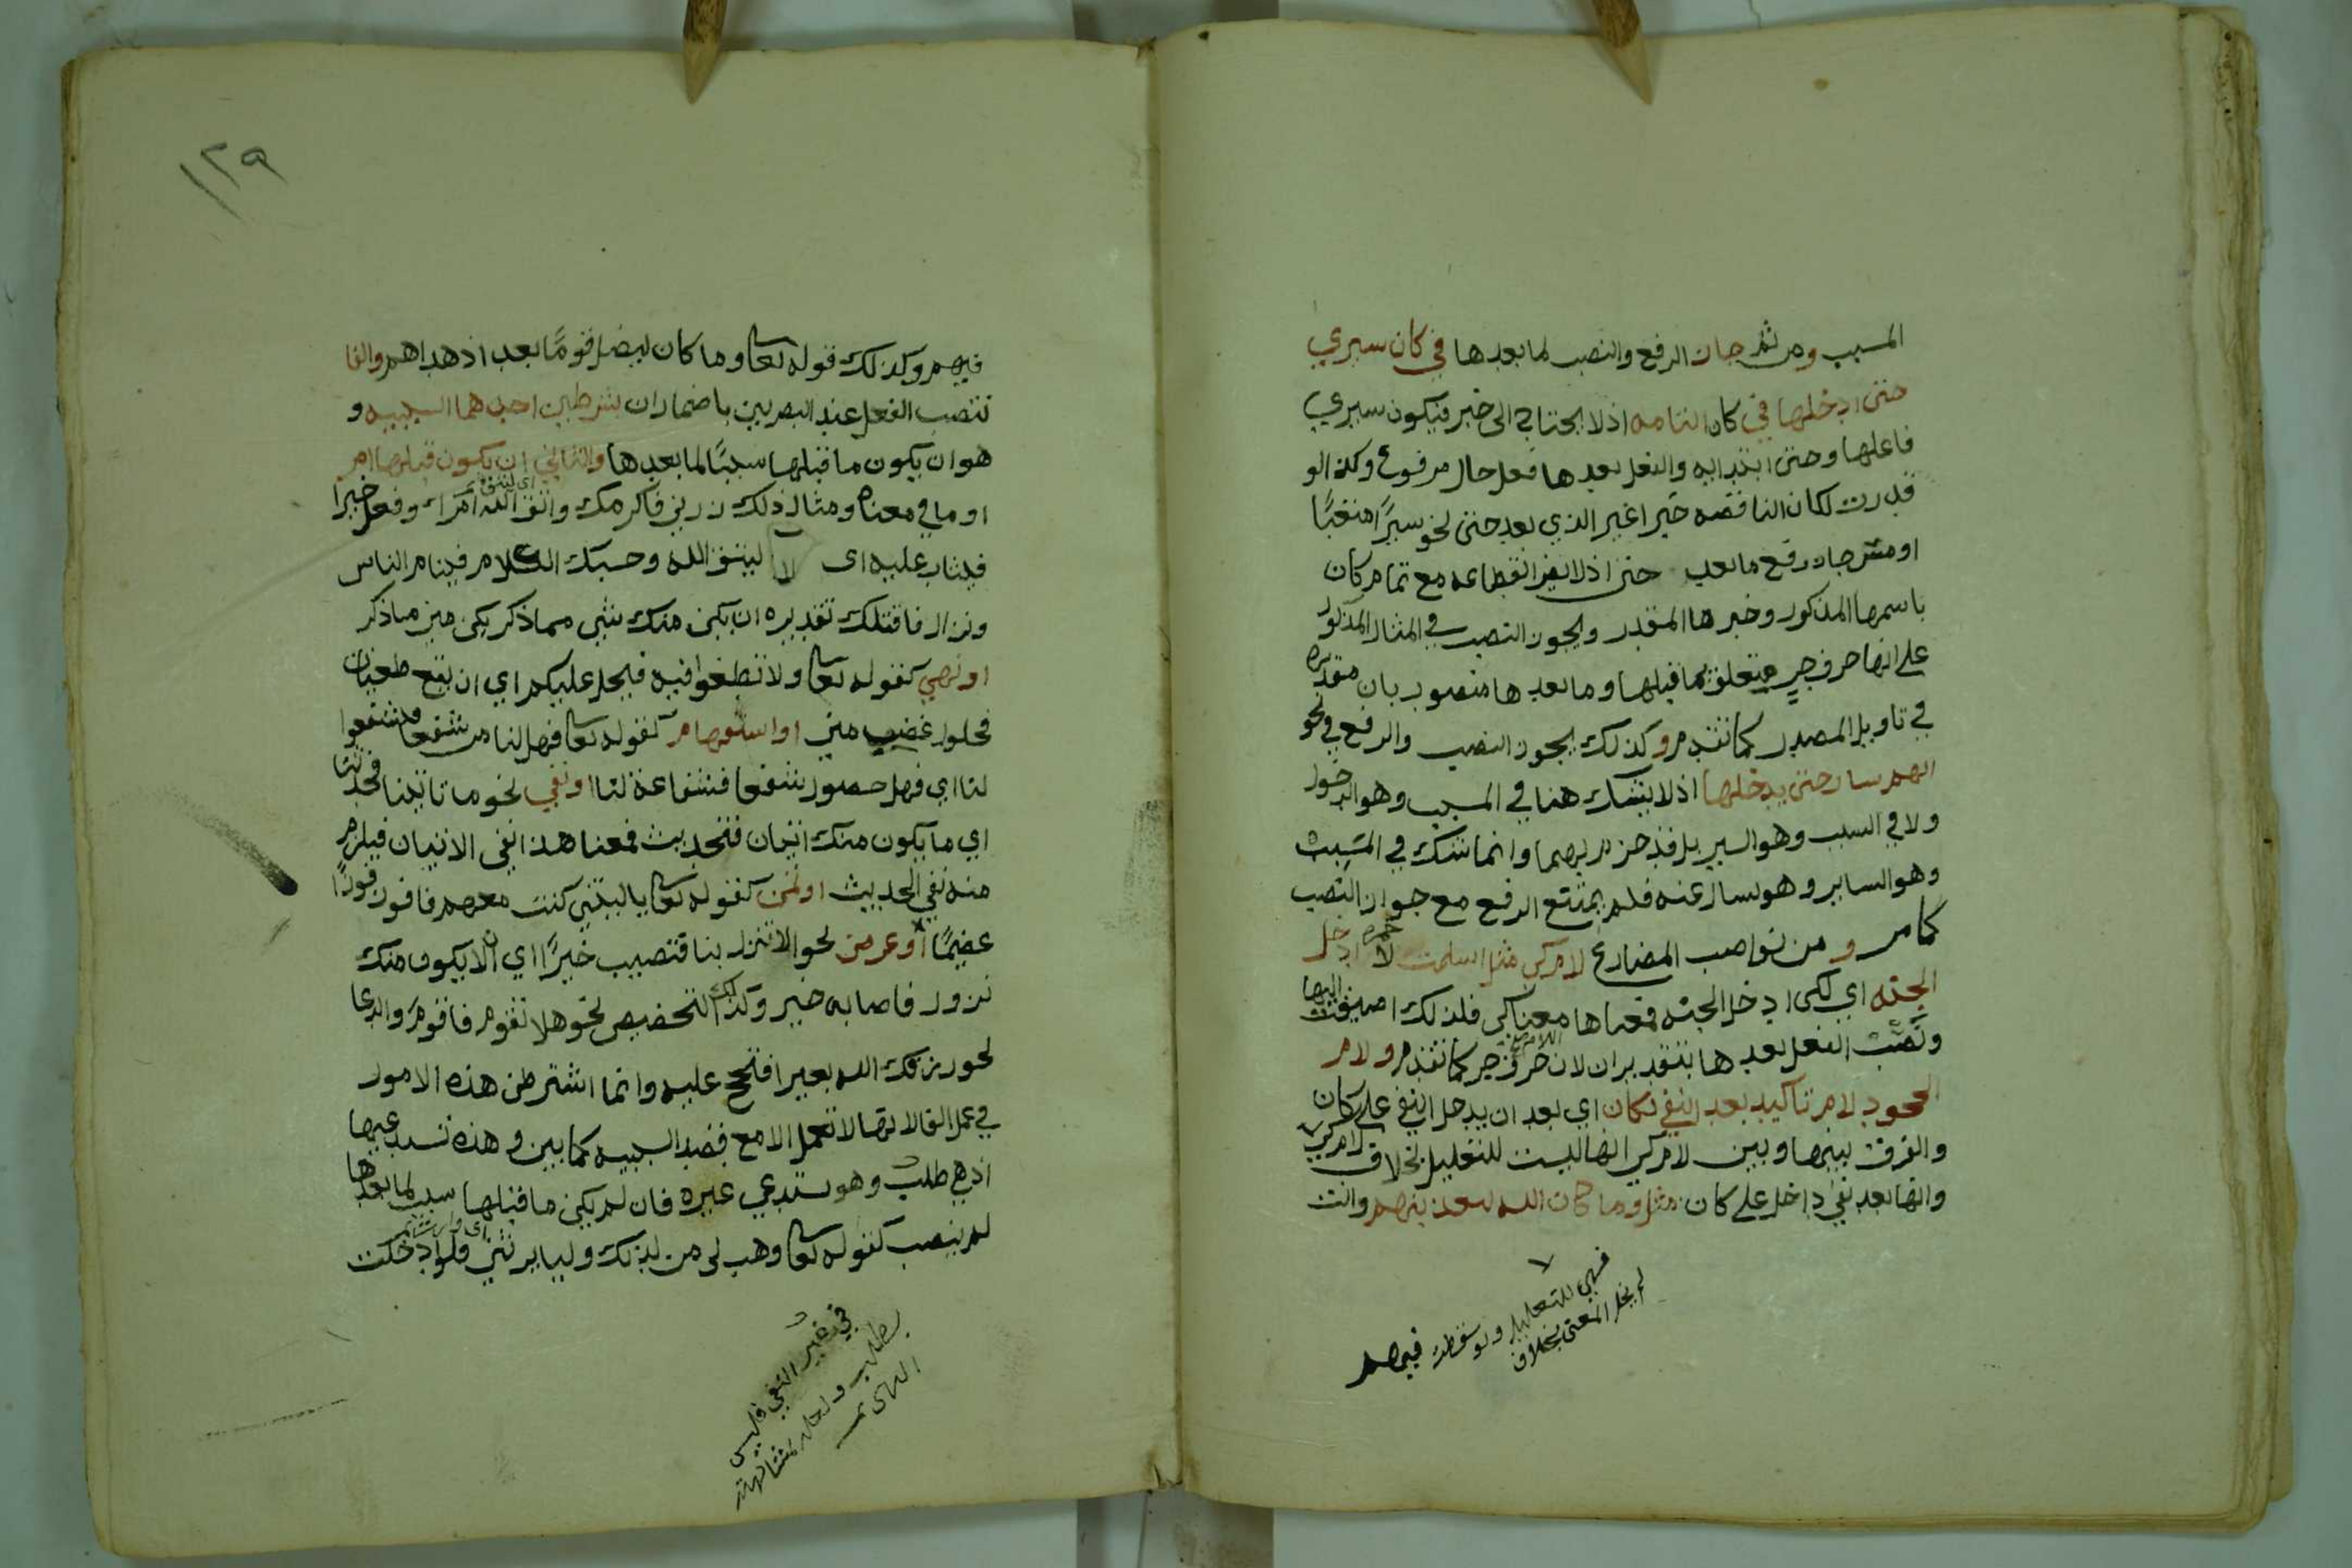 المسبب ومن ثم جاز الرفع والنصب لما بعدها في كان سيري
حتى ادخلها في كان التامه اذ لا يحتاج الى خبر فيكون سيري
فاعلها وحتى ابتدائيه والفعل بعدها فعل حال مرفوع وكذا لو
قدرت لكان الناقصه خبرا غير الذي بعد حتى نحو سيرًا متعبًا
او مثر جاز رفع ما بعد حتى اذ لا يضر انقطاعه مع تمام كان
باسمها المذكور وخبرها المقدر ويجوز النصب في المثال المذكور
على انها حرف جر متعلق بما قبلها وما بعدها منصوب بان مقدره
في تاويل المصدر كما تقدم وكذلك يجوز النصب والرفع في نحو
ايهم سار حتى يدخلها اذ لا يشك هنا في المسبب وهو الدخول
ولا في السبب وهو السير بل قد جزم بهما وانما شك في المسبب
وهو الساير وهو يسال عنه فلم يمتنع الرفع مع جواز النصب
كما مر و من نواصب المضارع لام كي مثل اسلمت لا ادخل
الجنه اي لكى ادخل الجنه فمعناها معنا كى فلذلك اضيفت اليها
ونصب الفعل بعدها بتقدير ان لان اللام حرف جر كما تقدم ولام
الجحود لام تاكيد بعد النفي لكان اي بعد ان يدخل النفي على كان
والفرق بينها وبين لام كي انها ليست للتعليل بخلاف لام كي
وانها بعد نفي داخل على كان مثل وما كان الله ليعذبهم وانت
فهي للتعليل ولو سقطت
لم يخل المعنى بخلاف
فيهم
١٢٩
فيهم وكذلك قوله تعا وما كان ليضل قومًا بعد اذ هداهم والفا
تنصب الفعل عند البصريين باضمار ان بشرطين احدهما السببيه و
هو ان يكون ما قبلها سببًا لما بعدها والثاني ان يكون قبلها امر
او ما في معناه ومثال ذلك زرني فاكرمك واتقى الله امرا وفعل خيرا
اى ليتق
فيثاب عليه اى ليتق الله وحسبك الكلام فينام الناس
ونزال فاقتلك تقديره ان يكن منك شي مما ذكر يكن مني ما ذكر
او نهي كقوله تعا ولا تطغوا فيه فيحل عليكم اي ان يقع طغيان
فحلول غضب مني او استفهام كقوله تعا فهل لنا من شفعا فيشفعوا
لنا اي فهل حصول شفعا فشفاعة لنا او نفي نحو ما تاتينا فتحدثنا
اي ما يكون منك اتيان فتحديث فمعنا هذا نفي الاتيان فيلزم
منه نفي الحديث او تمن كقوله تعا يا ليتني كنت معهم فافوز فوزًا
عضيمًا او عرض نحو الا تنزل بنا فتصيب خيرًا اي الا يكون منك
نزول فاصابه خير وكذلك التحضيض نحو هلا تقوم فاقوم والدعا
نحو رزقك الله بعيرا فتحج عليه وانما اشترطن هذه الامور
في عمل الفا لانها لا تعمل الا مع قصد السببيه كما بين وهذه تستدعيها
اذ هي طلب وهو يستدعي غيره فان لم يكن ما قبلها سبب لما بعدها
لم ينصب كقوله تعا وهب لى من لدنك وليا يرثني فلو ادخلت
في غير النفي فليس
بطلب ولعله لمشابهته
النهى تمت